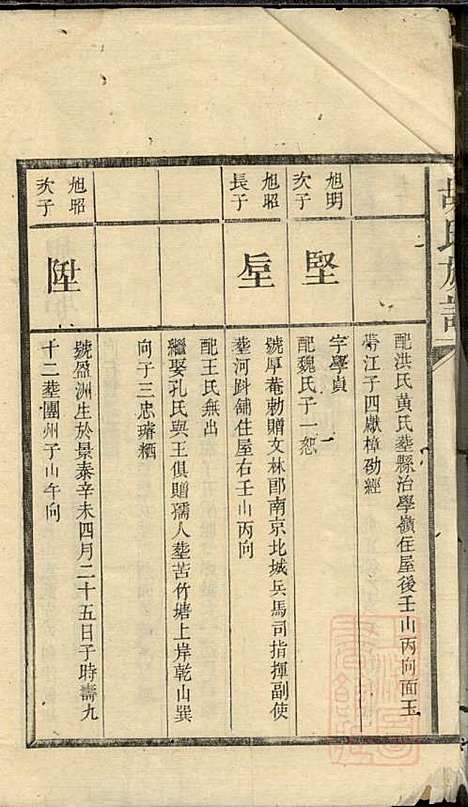 胡氏族譜
配洪氏黃氏塟縣治學嶺住屋後壬山丙向面玉
帶江子四獻樟勐經
旭明
次子
堅
字學貞
配魏氏子一恕
旭昭
長子
垕
號厚菴勅贈文林郎南京北城兵馬司指揮副使
塟河斟舖住屋右壬山丙向
配王氏無出
繼娶孔氏與王俱贈孺人塟苦竹塘上岸乾山巽
向子三忠璿栖
旭昭
次子
陞
號盈洲生於景泰辛未四月二十五日子時壽九
十二塟團州子山午向